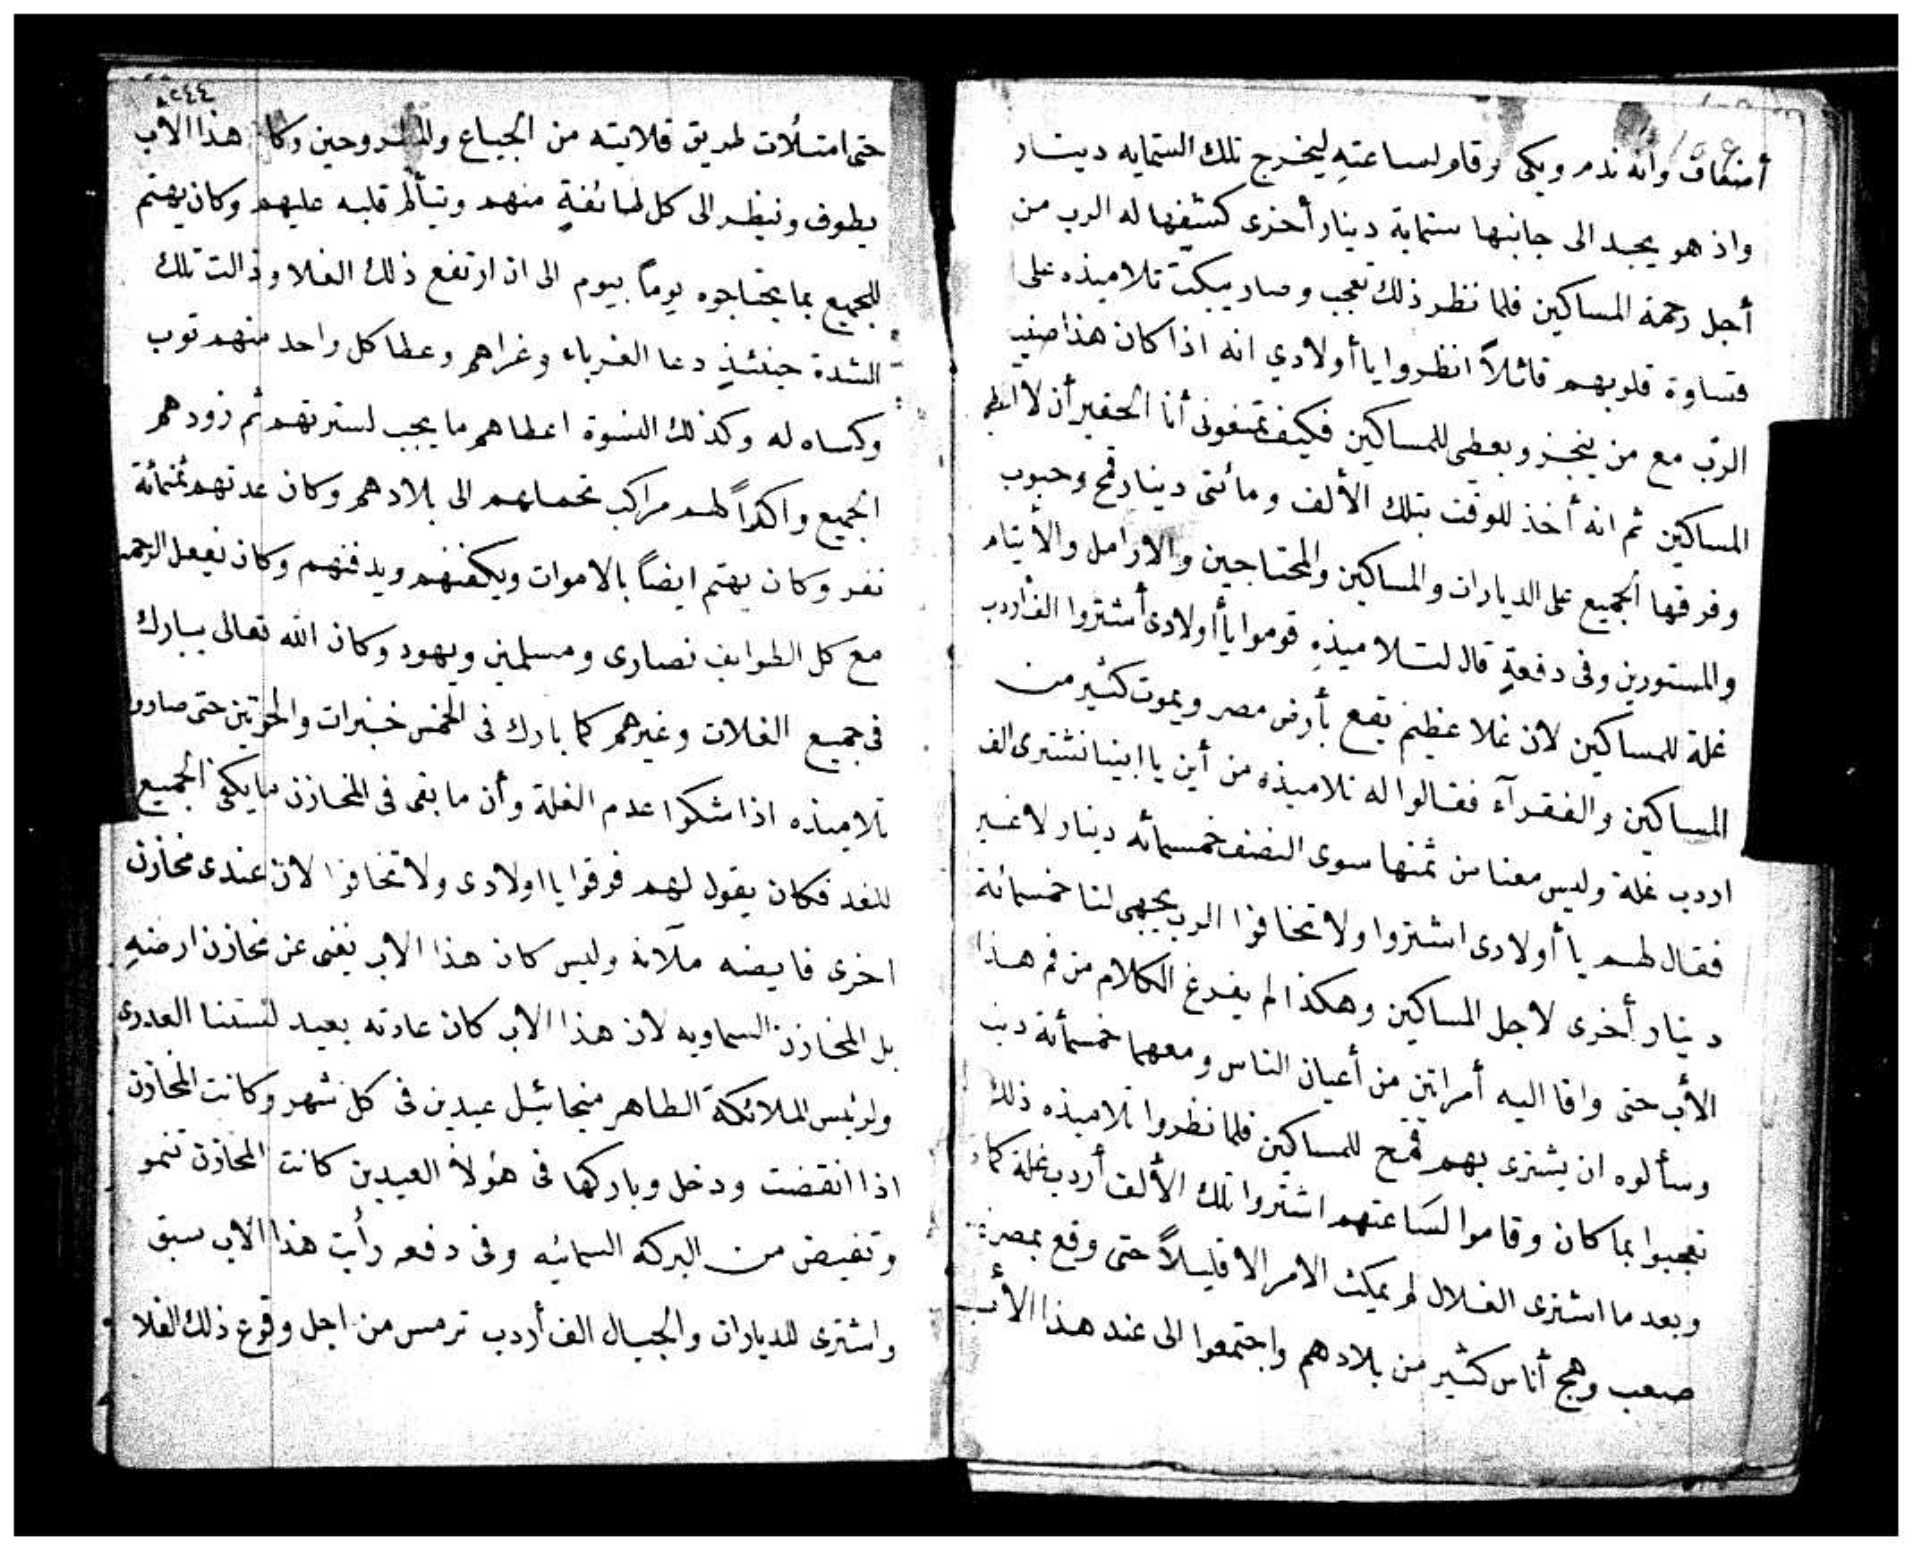 أضعاف وانه ندم وبكى وقام لساعته ليخرج تلك الستمايه دينار
واذ هو يجد الى جانبها ستماية دينار أخرى كشفها له الرب من
أجل رحمة المساكين فلما نظر ذلك تعجب وصار يبكت تلاميذه على
قساوة قلوبهم قائلاً انظروا يا أولادي انه اذا كان هذا صنيع
الرب مع من ينجز ويعطي للمساكين فكيف تمنعونى أنا الحقير أن لا اعطي
المساكين ثم انه أخذ للوقت بتلك الألف ومائتى دينار قمح وحبوب
وفرقها الجميع على الديارات والمساكين والمحتاجين والارامل والأيتام
والمستورين وفى دفعةٍ قال لتلاميذهِ قوموا يا أولادى أشتروا الف اردب
غلة للمساكين لان غلا عظيم يقع بأرض مصر ويموت كثير من
المساكين والفقرآء فقالوا له تلاميذه من أين يا ابينا نشترى الف
اردب غلة وليس معنا من ثمنها سوى النصف خمسمائه دينار لا غير
فقال لهم يا أولادى اشتروا ولا تخافوا الرب يجهى لنا خمسمائة
دينار أخرى لاجل المساكين وهكذا لم يفرغ الكلام من فم هذا
الأب حتى وافا اليه أمراتين من أعيان الناس ومعهما خمسمأئة
وسألوه ان يشترى بهم قمح للمساكين فلما نظروا تلاميذه ذلك
تعجبوا بما كان وقاموا لسَاعتهم اشتروا تلك الألف أردب غلة
وبعد ما اشترى الغلال لم يمكث الامر الا قليلاً حتى وقع بمصر
صعب وهج أناس كثير من بلادهم واجتمعوا الى عند هذا الأب
٢٤٤
حتى امتلأت طريق قلايته من الجياع والمطروحين وكان هذا الاب
يطوف وينظر الى كل طائفةٍ منهم ويتألم قلبه عليهم وكان يهتم
للجميع بما يحتاجوه يوماً بيوم الى ان ارتفع ذلك الغلا وزالت تلك
الشدة حينئذٍ دعا الغرباء وعزاهم وعطا كل واحد منهم توب
وكساه له وكذلك النسوة اعطاهم ما يجب لسترتهم ثم زودهم
الجميع واكراً لهم مراكب تحملهم الى بلادهم وكان عدتهم ثمنمائة
نفر وكان يهتم ايضاً بالاموات ويكفنهم ويدفنهم وكان يفعل الرحمه
مع كل الطوايف نصارى ومسلمين ويهود وكان الله تعالى يبارك
فى جميع الغلات وغيرهم كما بارك فى الخمس خبزات والحوتين حتى صاروا
تلاميذه اذا شكوا عدم الغلة وأن ما بقى فى المخازن ما يكفى الجميع
للغد فكان يقول لهم فرقوا يا اولادى ولا تخافوا لان عندى مخازن
اخرى فايضه ملآنه وليس كان هذا الاب يغنى عن مخازن ارضيهِ
بل المخازن السماويه لان هذا الاب كان عادته يعيد لستنا العدرى
ولرئيس الملائكة الطاهر ميخائيل عيدين فى كل شهر وكانت المخازن
اذا انقضت ودخل وباركها فى هولاء العيدين كانت المخازن تنمو
وتفيض من البركه السمائيه وفى دفعه رأيت هذا الاب سبق
واشترى للديارات والجبال الف أردب ترمس من اجل وقوع ذلك الغلا